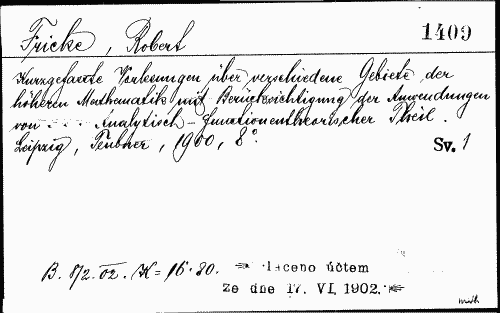 Fricke, Robert 1409
Kurzgefasste Vorlesungen über verschiedene Gebiete der
höheren Mathematik mit Berücksichtigung der Anwendungen
von . . . Analytisch-functionentheorischer Theil.
Leipzig, Teubner, 1900, 8°. Sv. 1
B. 8/2. 02. K = 16·80. placeno účtem
ze dne 17. VI. 1902.
math